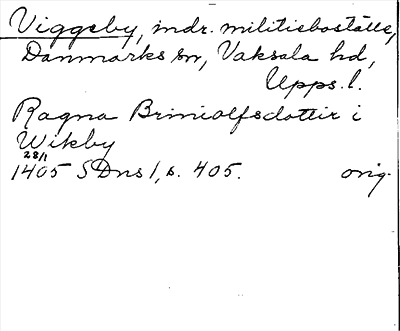 Viggeby, indr. militieboställe,
Danmarks sn, Vaksala hd,
Upps. l.
Ragna Briniolfsdotter i
Wikby
28/1
1405 SDns 1, s. 405. orig.